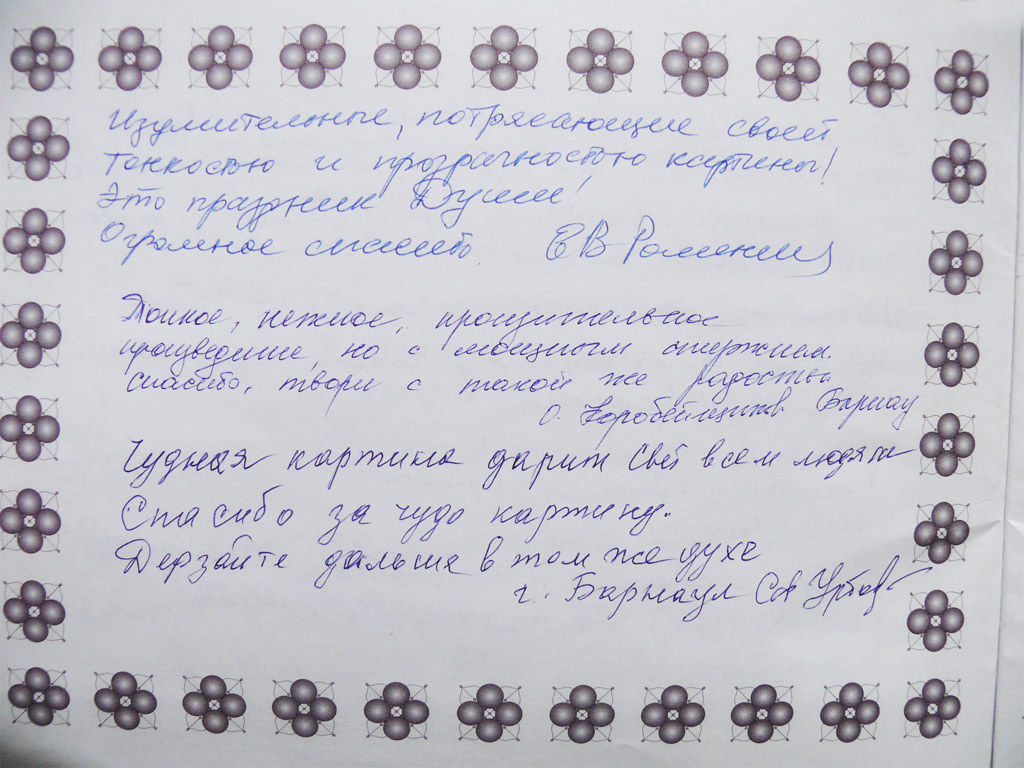 Изумительные, потрясающие своей
тонкостью и прозрачностью картины!
Это праздник Души!
Огромное спасибо. ЕВ
Тонкое, нежное, пронзительное
произведение, но с мощным стержнем.
спасибо, твори с такой же радостью
О. Коробейщиков Барнаул
Чудная картина дарит свет всем людям
Спасибо за чудо картину.
Дерзайте дальше в том же духе
г. Барнаул